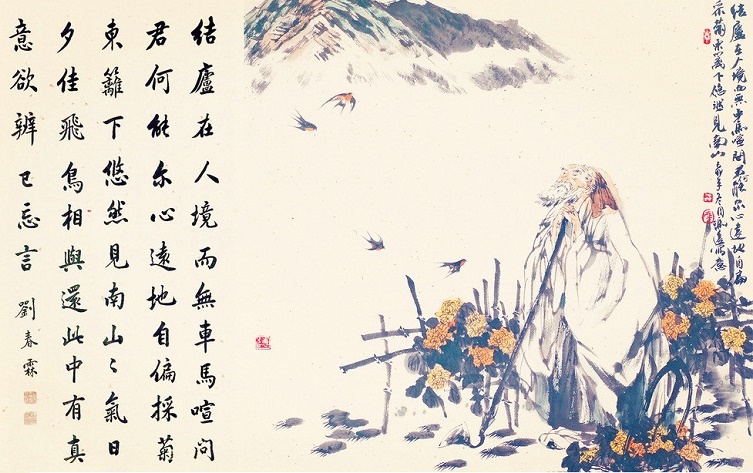 结廬在人境而無車馬喧問君何能尔心遠地自偏
采菊東籬下悠然見南山
結廬在人境而無車馬喧问
君何能尔心遠地自偏採菊
東籬下悠然見南山〻氣日
夕佳飛鳥相與還此中有真
意欲辨已忘言
劉春霖